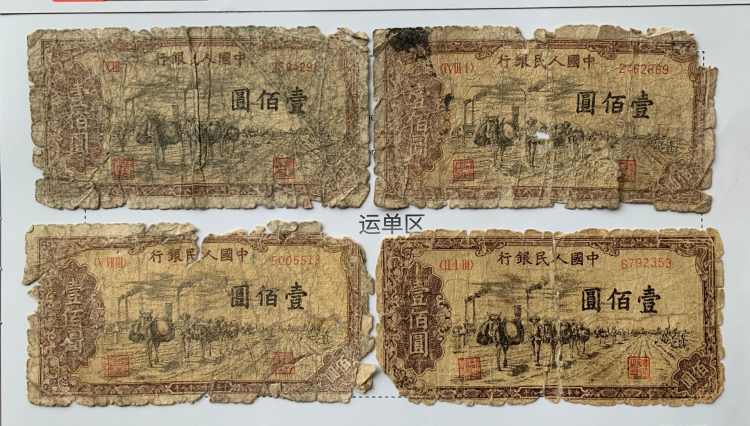 中國人民銀行
壹佰圓
壹佰圓
中國人民銀行
2462889
壹佰圓
壹佰圓
运单区
中國人民銀行
5005513
壹佰圓
壹佰圓
佰圓
中國人民銀行
(II I III)
6792353
壹佰圓
壹佰圓
佰圓